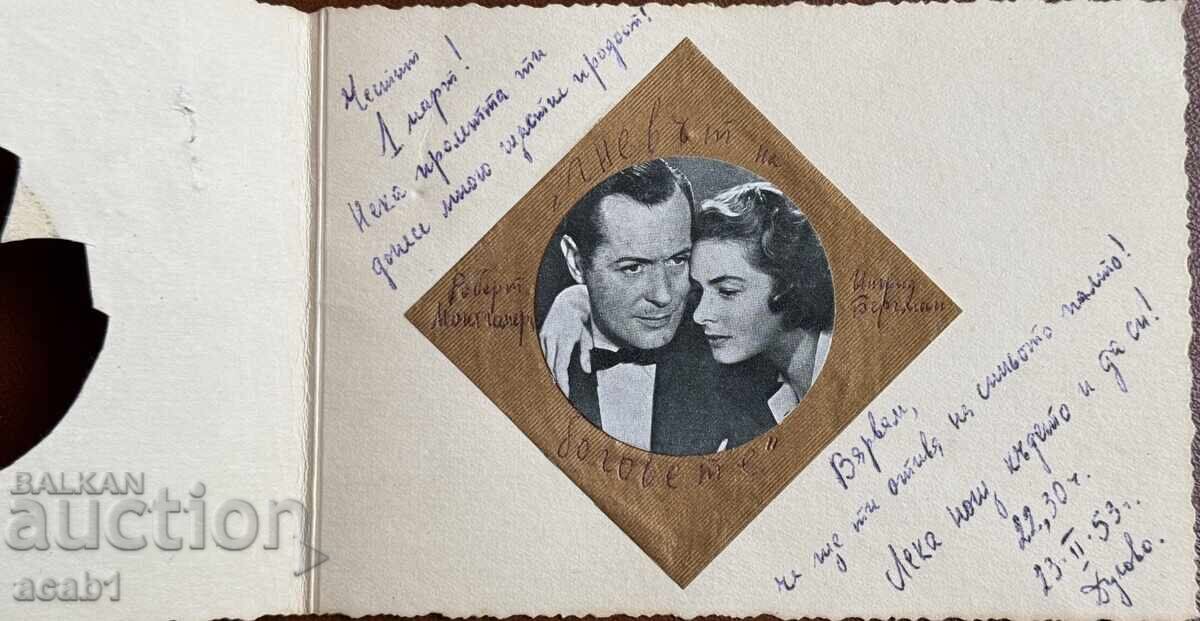 Честит
1 март!
Нека пролетта ти
донесе много щастие и радост!
„Гневът на
Роберт
Монтгомери
Ингрид
Бергман
боговете"
Вярвам,
че ще ти отива на синьото палто!
Лека нощ където и да си!
22,30 ч.
23·II·53 г.
Дулово.
BALKAN
auction
acab1